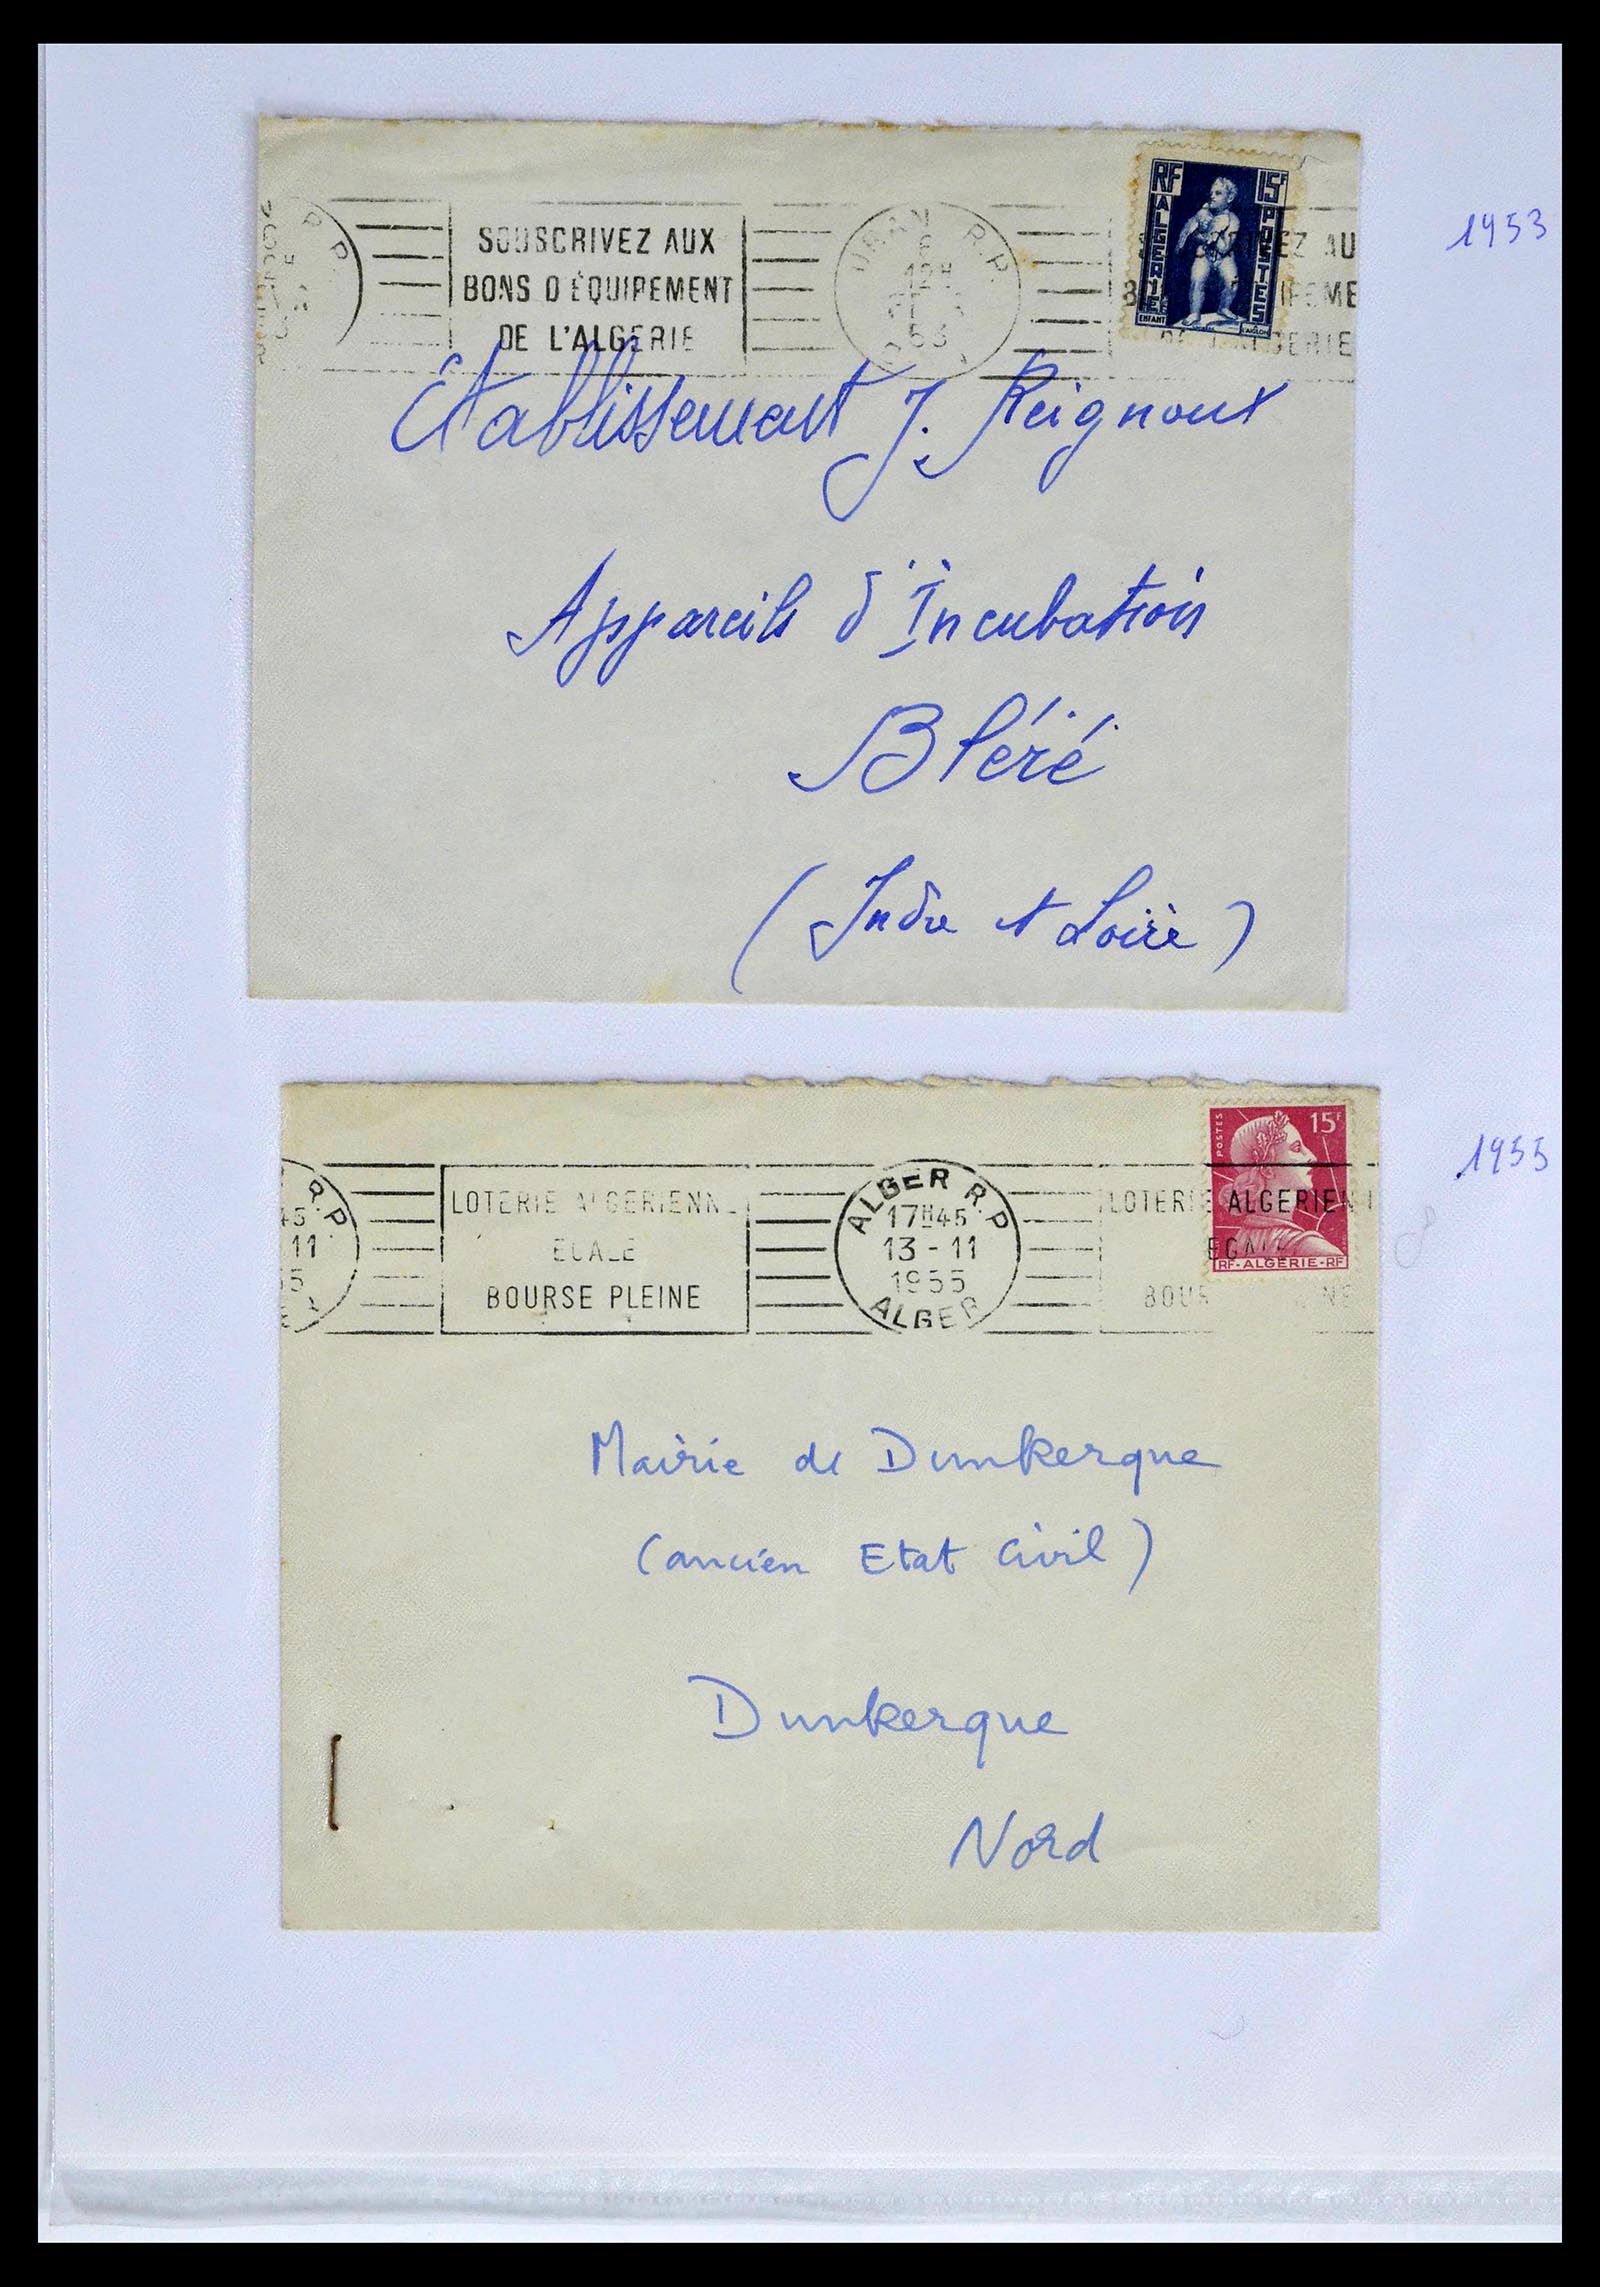 R.P.
SOUSCRIVEZ AUX
BONS D'ÉQUIPEMENT
DE L'ALGERIE
ORAN R.P.
12H
53
RF
15F
ALGERIE
POSTES
ENFANT
1953
Etablissement J. Reignoux
Appareils d'Incubation
Bléré
(Indre et Loire)
R.P
45
11
LOTERIE ALGERIENNE
EGALE
BOURSE PLEINE
ALGER R.P
17H45
13-11
1955
ALGER
LOTERIE ALGERIEN
EGALE
POSTES
15F
RF-ALGERIE-RF
1955
Mairie de Dunkerque
(ancien Etat Civil)
Dunkerque
Nord